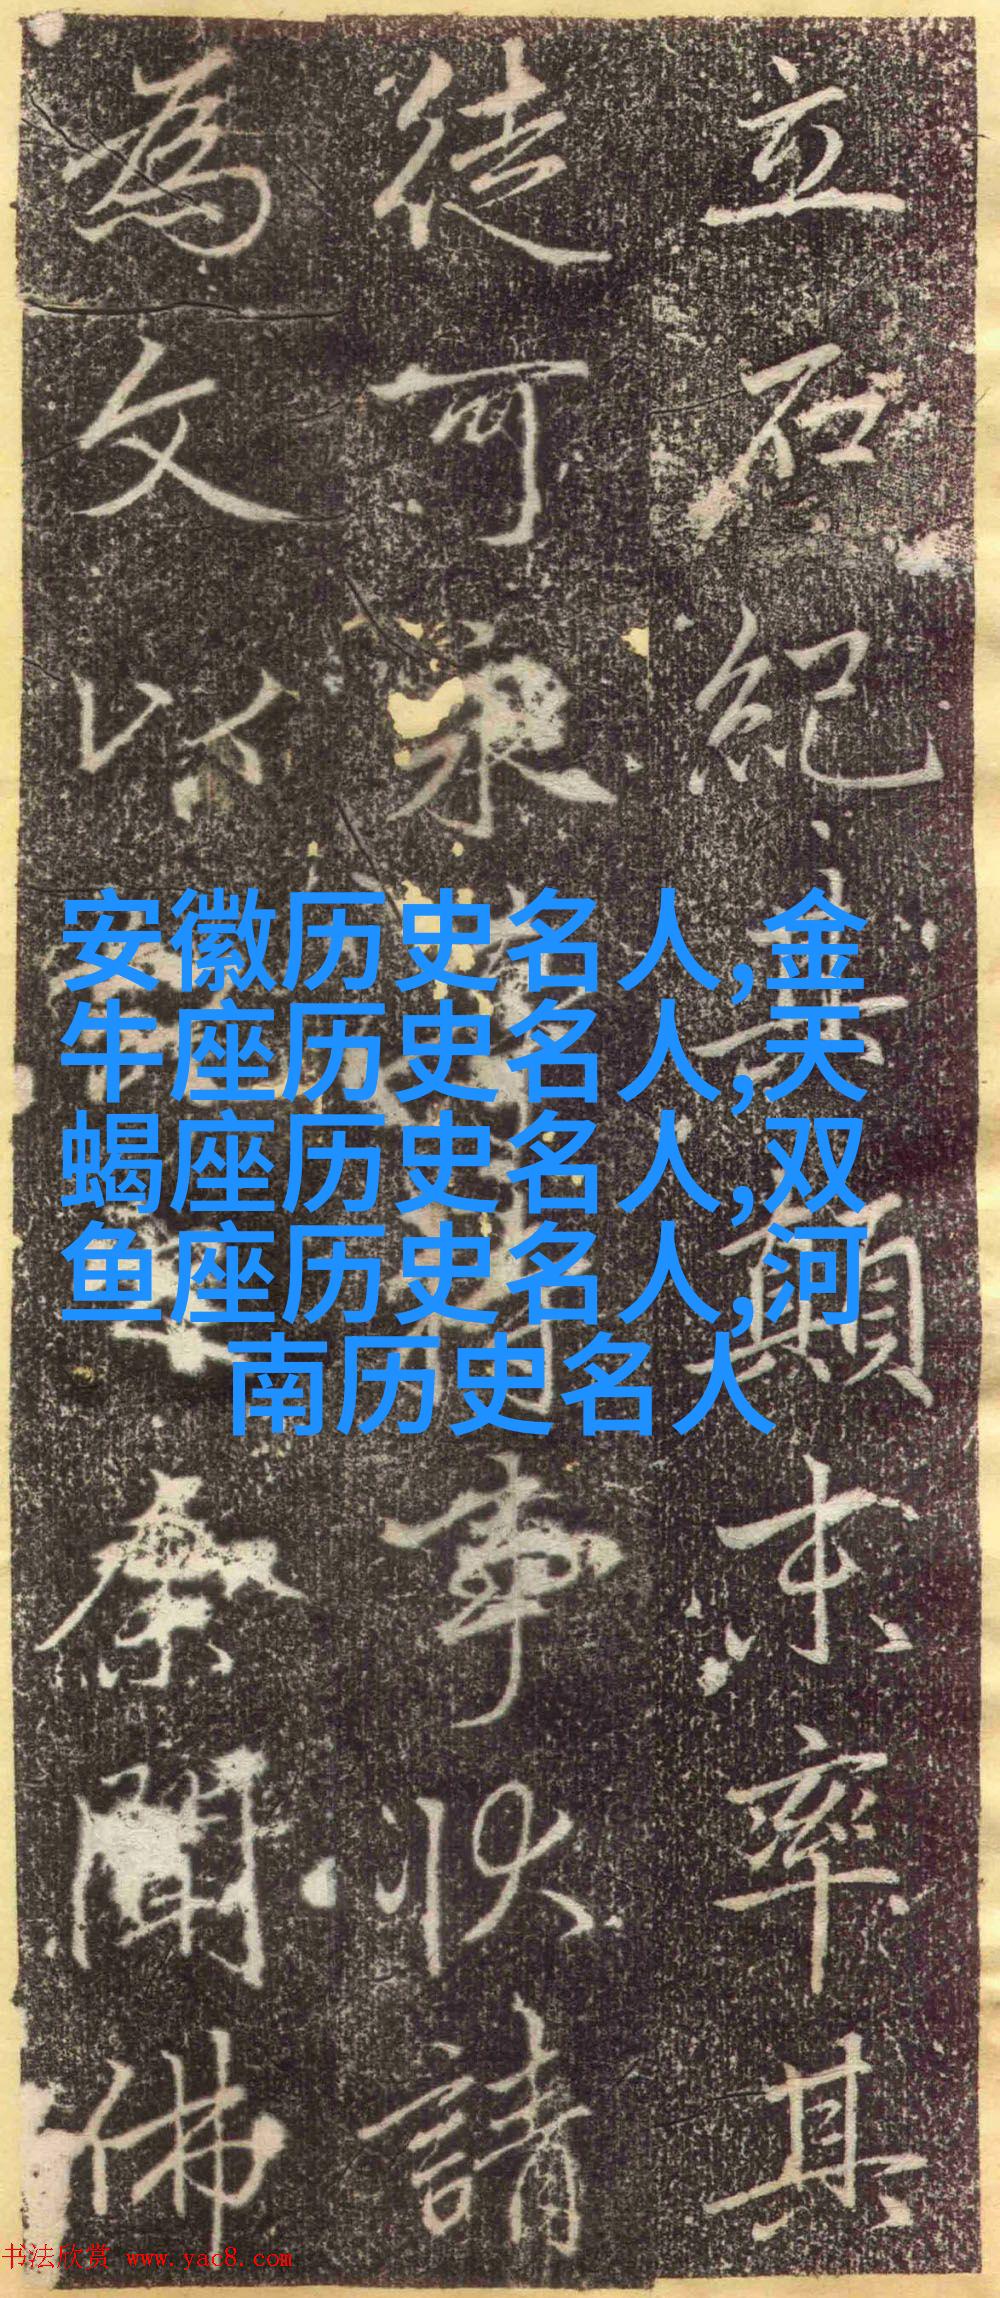 立石紀其顛末率其
徒可永
事狀請
為文以
余聞佛
安徽历史名人,金
牛座历史名人,天
蝎座历史名人,双
鱼座历史名人,河
南历史名人
书法欣赏 www.yac8.com